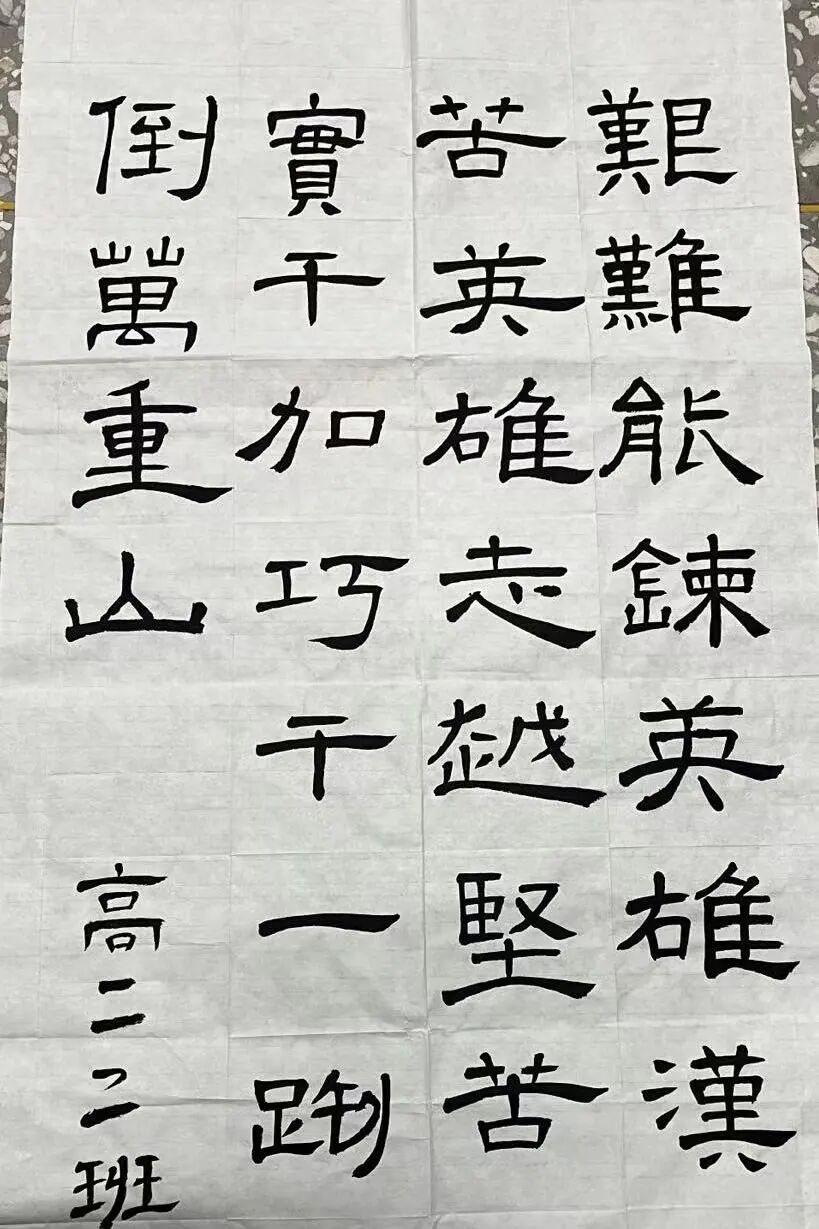 艱難能鍊英雄漢
苦英雄志越堅苦
實干加巧干一
倒萬重山
高二二班